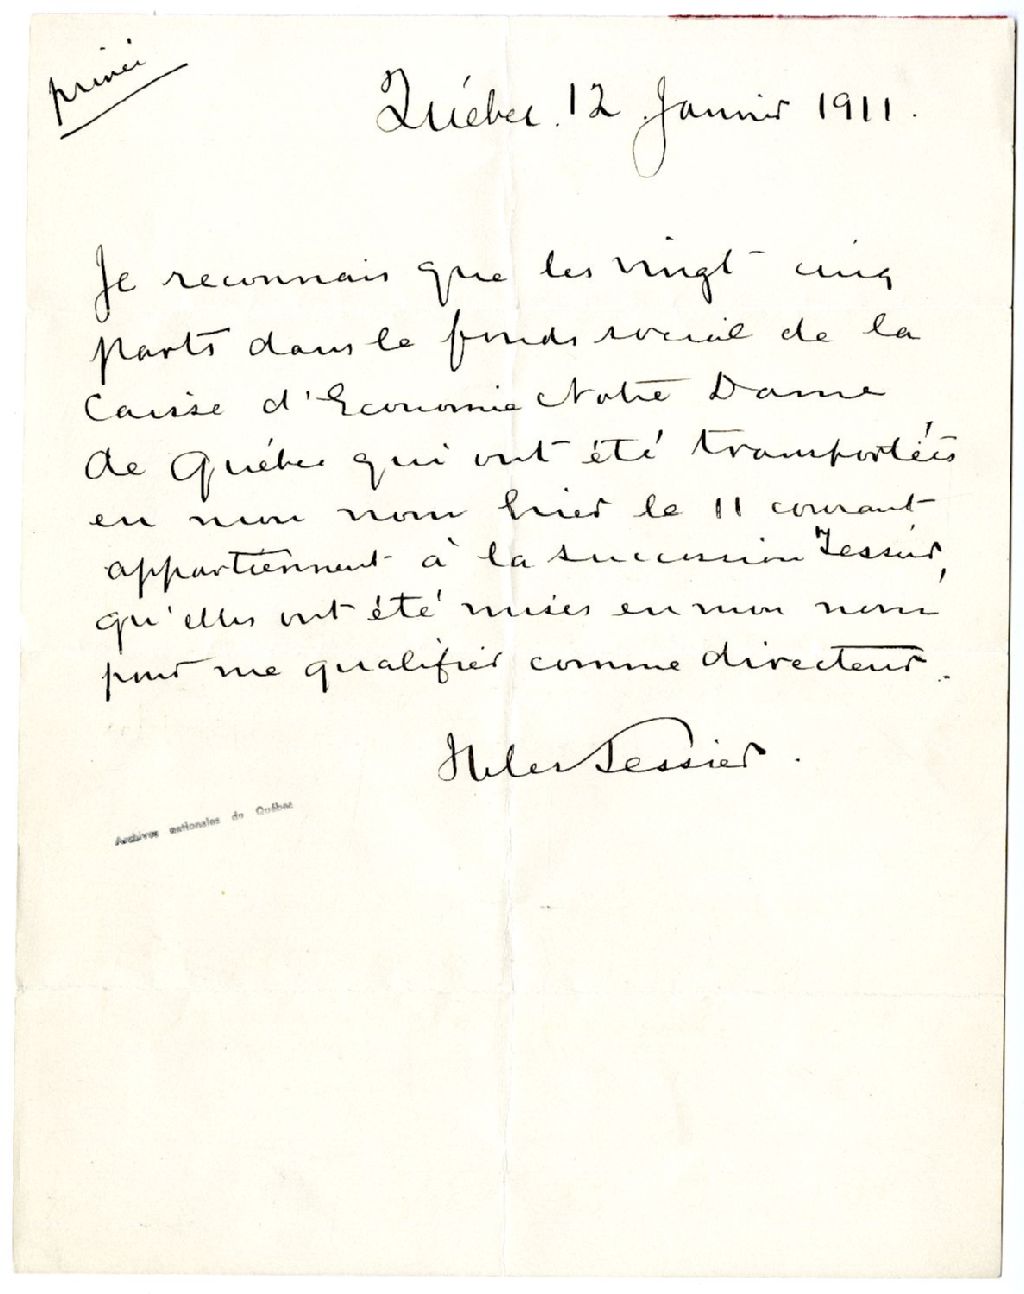 privé
Québec. 12 Janvier 1911.
Je reconnais que les vingt cinq
parts dans le fonds social de la
Caisse d'Economie Notre Dame
de Québec qui ont été transportées
en mon nom hier le 11 courant
appartiennent à la succession Tessier,
qu'elles ont été mises en mon nom
pour me qualifier comme directeur.
Jules Tessier.
Archives nationales du Québec